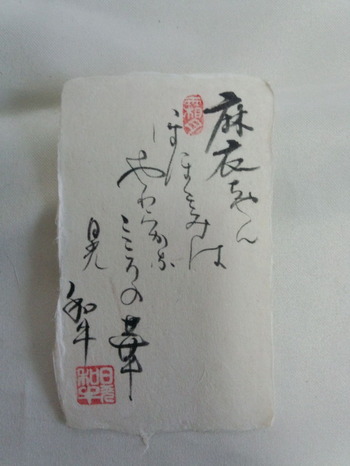 麻衣ちゃん
ほほえみは
やわらかな
こころの華